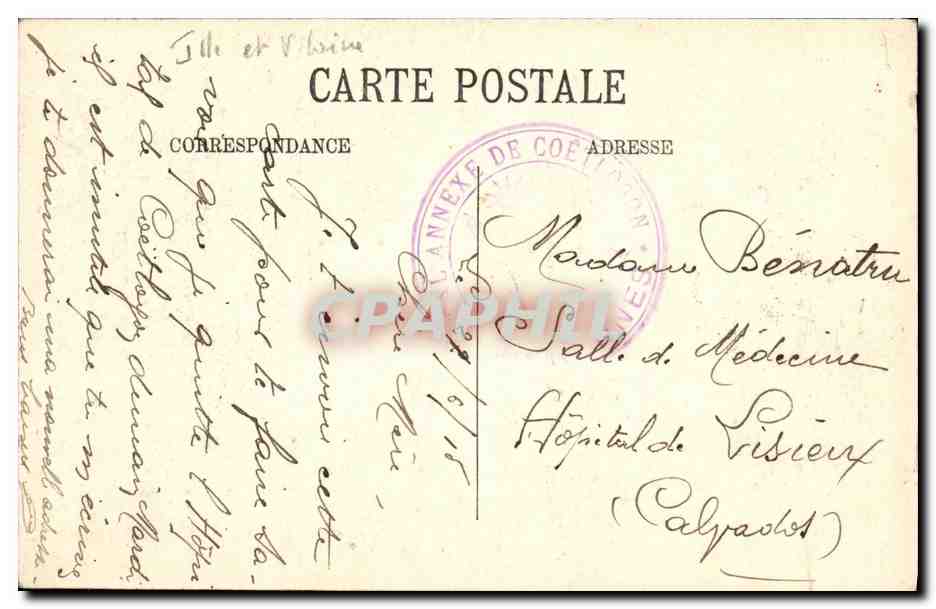 Ille et Vilaine
CARTE POSTALE
CORRESPONDANCE
ADRESSE
ANNEXE DE COËTLOGON
NNES
CPARAPHIL
Le 29/6/15
Chère Mère,
Je t'envoie cette
carte pour te faire sa-
voir que je quitte l'Hôpi
tal de Coëtlogon demain, Mardi
il est inutile que tu m'écrives
je te donnerai ma nouvelle adresse.
Bons baisers
Madame Bénatru
Salle de Médecine
Hôpital de Lisieux
(Calvados)